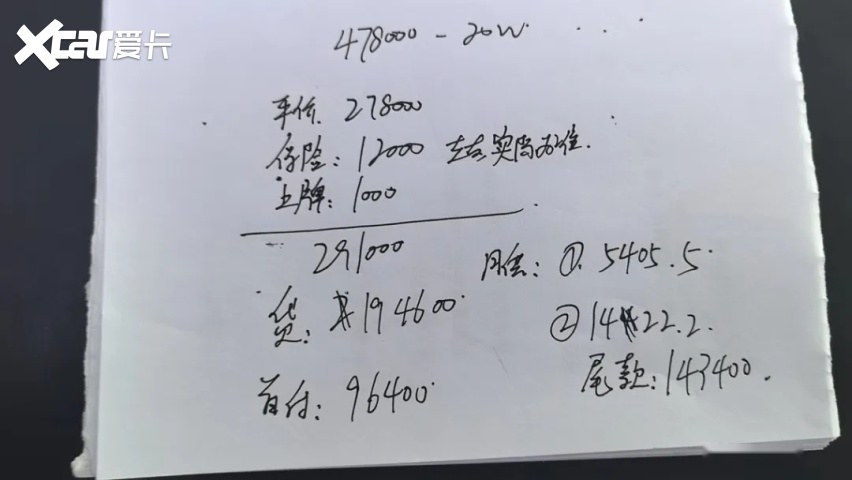 Xcar爱卡
478000 - 20W. . . .
车价: 278000
保险: 12000 左右实尚为准.
上牌: 1000
291000
贷: 194600
月供: ①. 5405.5.
②1422.2.
首付: 96400
尾款: 143400.